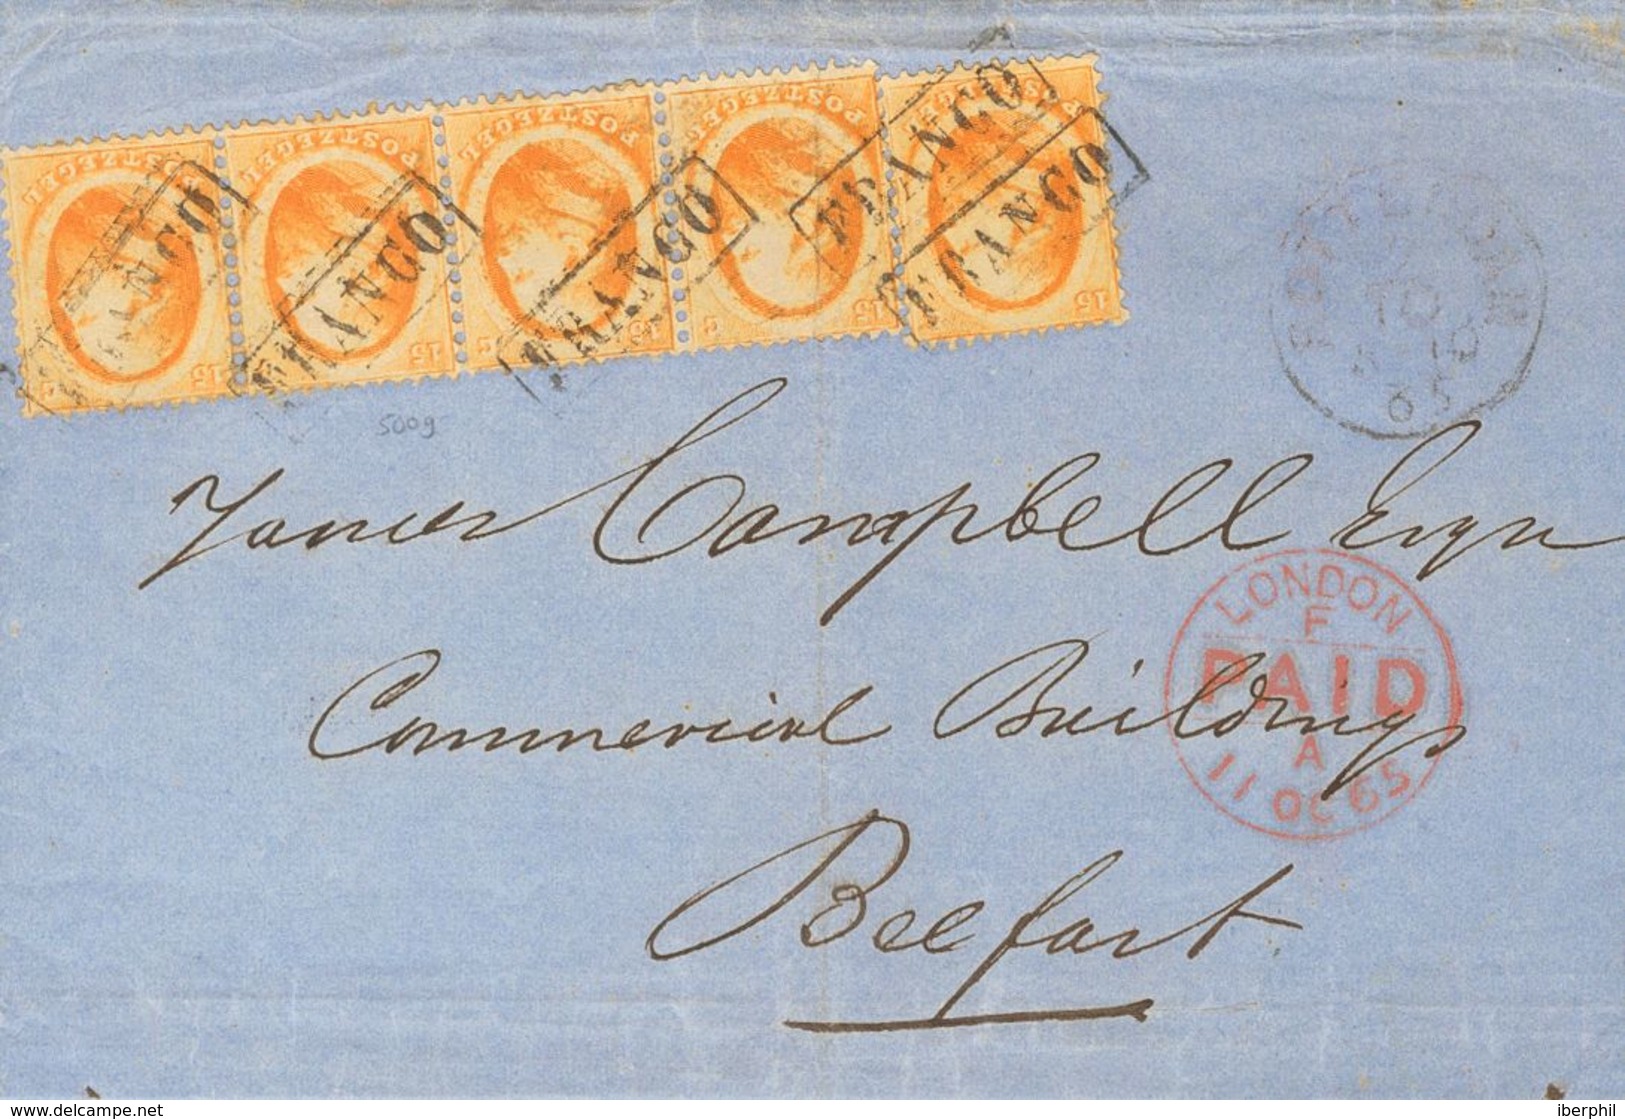 POSTZEGEL POSTZEGEL POSTZEGEL POSTZEGEL
15 C 15 C 15 C 15 C 15
FRANCO FRANCO FRANCO FRANCO FRANCO
5009
10
65
James Campbell Esqre
LONDON
F
PAID
A
11 OC 65
Commercial Buildings
Belfast
www.delcampe.net
iberphil